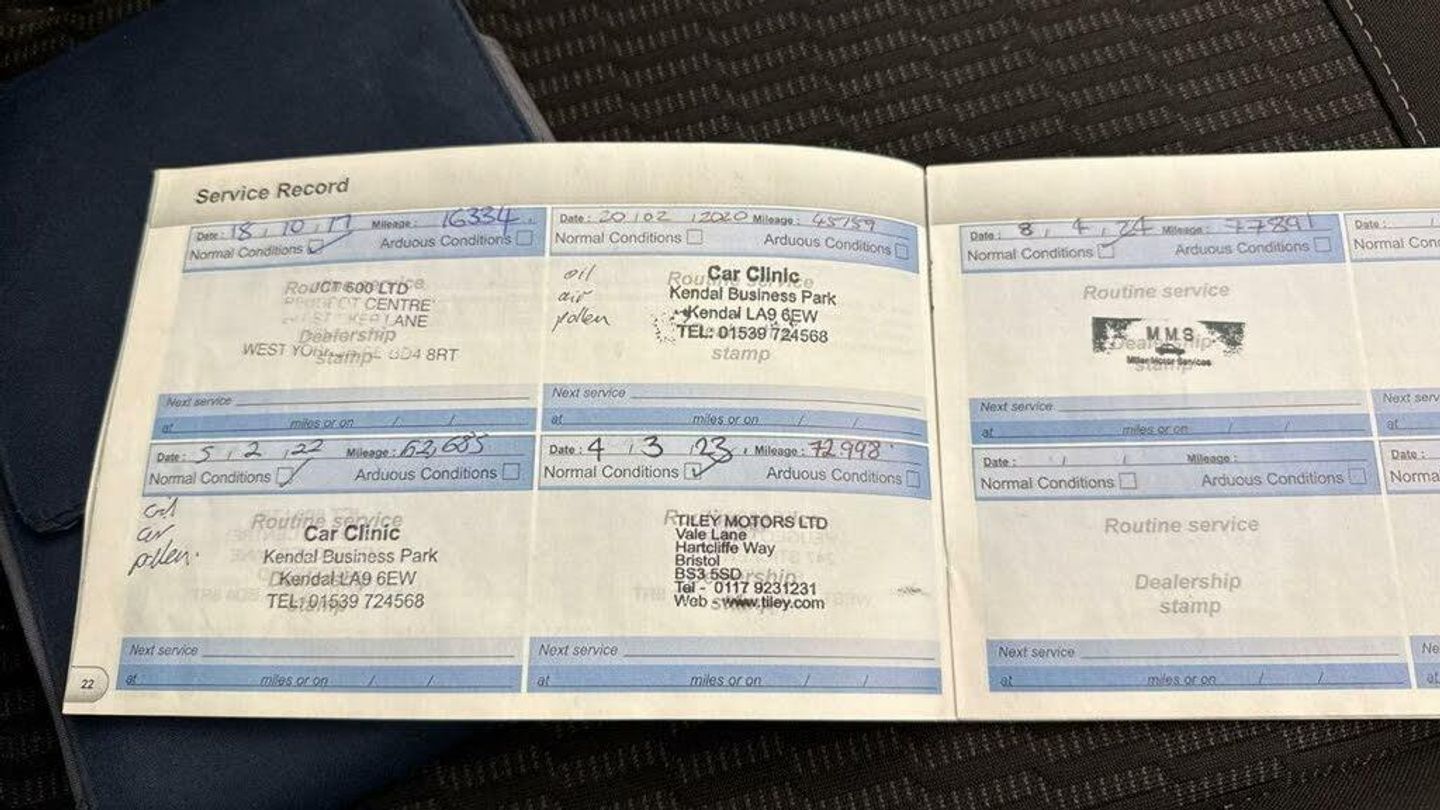 Service Record
Date: 18, 10, 17 Mileage: 16334
Normal Conditions Arduous Conditions
Routine service
JCT 600 LTD
PEUGEOT CENTRE
LANE
Dealership
stamp
WEST BD4 8RT
Next service
at miles or on / /
Date: 20, 02, 2020 Mileage: 45759
Normal Conditions Arduous Conditions
oil
air
pollen
Routine service
Car Clinic
Kendal Business Park
Kendal LA9 6EW
Dealership
TEL: 01539 724568
stamp
Next service
at miles or on / /
Date: 5, 2, 22 Mileage: 62,685
Normal Conditions Arduous Conditions
oil
air
pollen.
Routine service
Car Clinic
Kendal Business Park
Kendal LA9 6EW
Dealership
TEL: 01539 724568
stamp
Next service
at miles or on / /
22
Date: 4, 3, 23, Mileage: 72998
Normal Conditions Arduous Conditions
TILEY MOTORS LTD
Vale Lane
Hartcliffe Way
Bristol
BS3 5SD
Tel - 0117 9231231
Web - www.tiley.com
Next service
at miles or on / /
Date: 8, 4, 24 Mileage: 77891
Normal Conditions Arduous Conditions
Routine service
M.M.S
Dealership
Miller Motor Services
stamp
Next service
at miles or on / /
Date: / / Mileage:
Normal Conditions Arduous Conditions
Routine service
Dealership
stamp
Next service
at miles or on / /
Date: /
Normal Con
Next serv
at
Date:
Norma
Ne
at